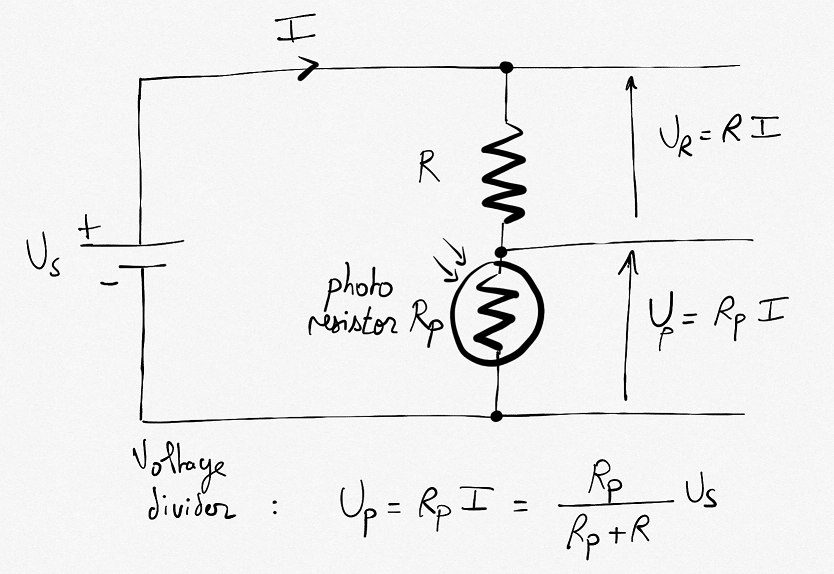 I
U_R = R I
R
+
U_s
-
photo
resistor R_p
U_p = R_p I
Voltage
divider : U_p = R_p I = R_p / (R_p + R) U_s